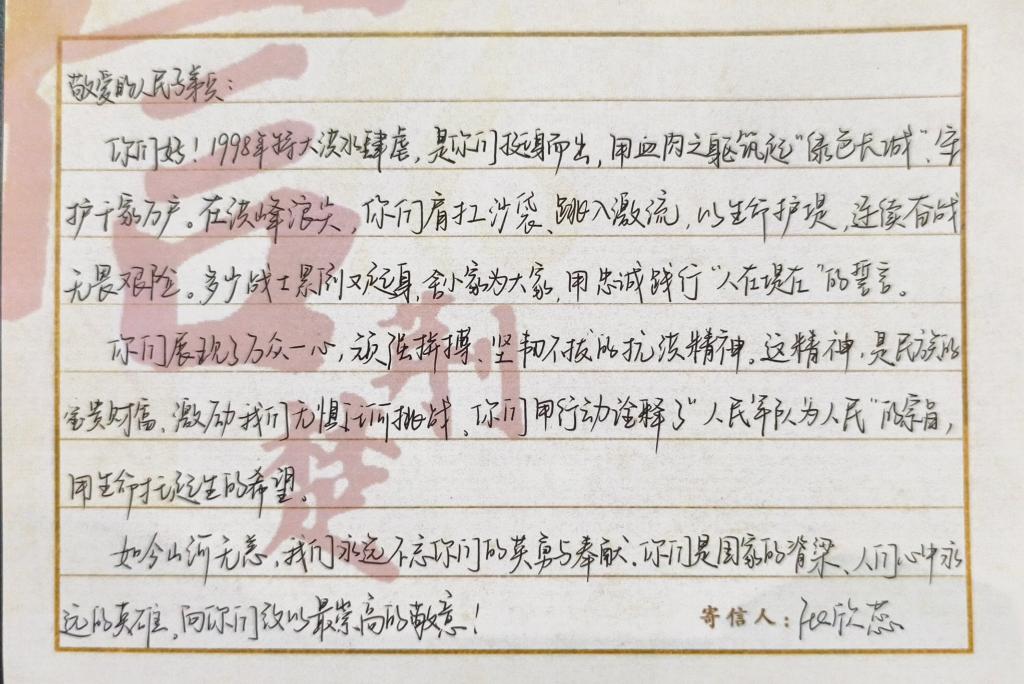 敬爱的人民子弟兵：
你们好！1998年特大洪水肆虐，是你们挺身而出，用血肉之躯筑起“绿色长城”，守
护千家万户。在洪峰浪尖，你们肩扛沙袋、跳入激流，以生命护堤，连续奋战
无畏艰险。多少战士累倒又起身，舍小家为大家，用忠诚践行“人在堤在”的誓言。
你们展现了万众一心，顽强拼搏、坚韧不拔的抗洪精神。这精神，是民族的
宝贵财富，激励我们无惧任何挑战，你们用行动诠释了“人民军队为人民”的宗旨，
用生命托起生的希望。
如今山河无恙，我们永远不忘你们的英勇与奉献，你们是国家的脊梁、人们心中永
远的英雄，向你们致以最崇高的敬意！
寄信人：欣蕊